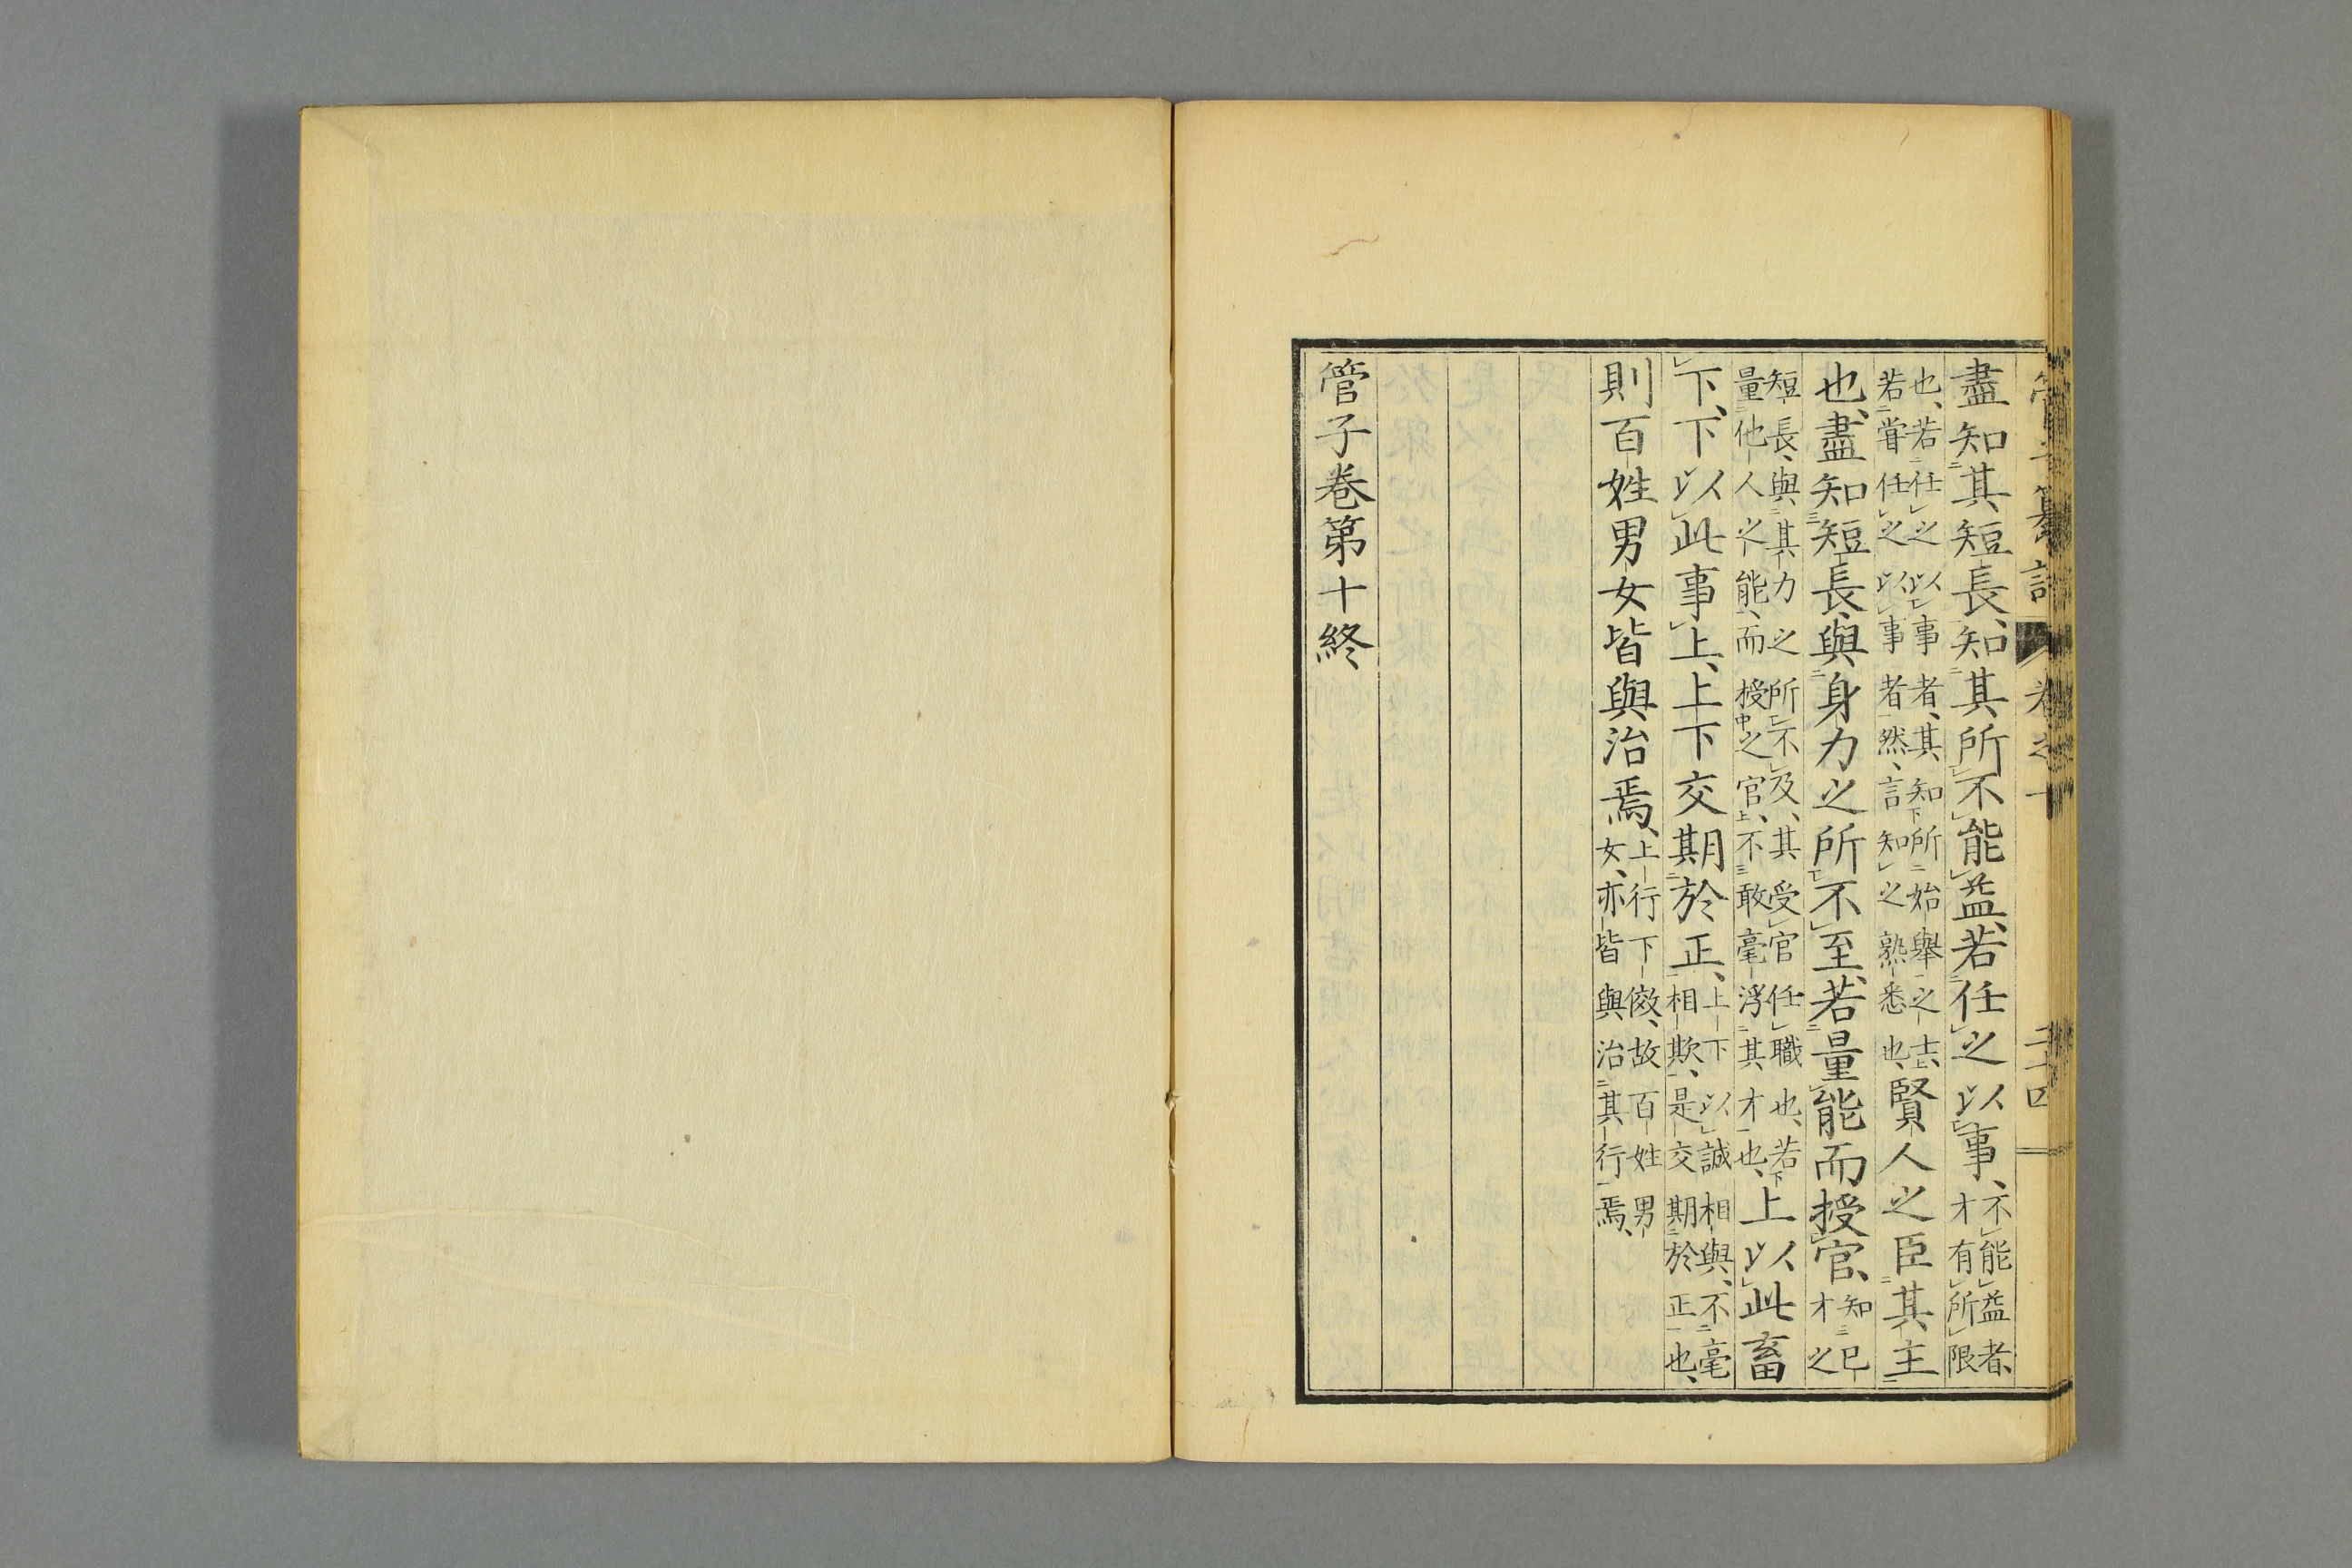 盡知其短長、知其所不能益、若任之以事、不能益者、才有所限
也、若任之以事者、其知所始舉之士、若嘗任之以事者然、言知之熟悉也、賢人之臣其主
也、盡知短長、與身力之所不至、若量能而授官、知己才之
短長、與其力之所不及、其受官任職也、若量他人之能、而授之官、不敢毫浮其才也、上以此畜
下、下以此事上、上下交期於正、上下以誠相與、不毫相欺、是交期於正也、
則百姓男女皆與治焉、上行下傚、故百姓男女、亦皆與治其行焉、
管子卷第十終
管子纂詁 卷之十 二十四